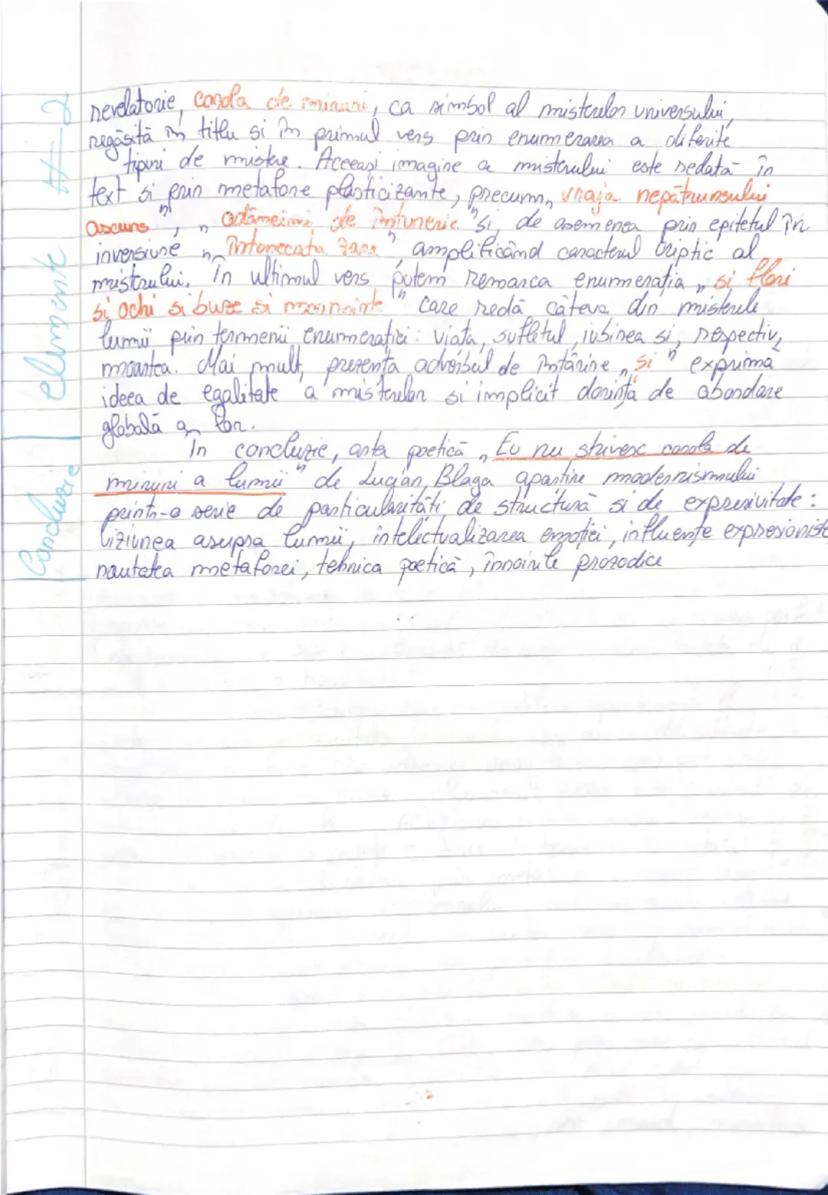 revelatorie, corola de minuni, ca simbol al misterelor universului,
regăsită în titlu si în primul vers prin enumerarea a diferite
tipuri de mistere. Aceeasi imagine a misterului este redată în
text si prin metafore plasticizante, precum „vraja nepătrunsului
ascuns", „adâncimi de întuneric" si, de asemenea prin epitetul în
inversiune „întunecata zare", amplificând caracterul criptic al
mistrului. În ultimul vers putem remarca enumerația „si flori
si ochi si buze si morminte" care redă câteva din misterele
lumii prin termenii enumerației: viața, sufletul, iubirea si, respectiv,
moartea. Mai mult, prezența adverbul de întărire „si" exprimă
ideea de egalitate a misterelor si implicit dorința de abordare
globală a lor.
În concluzie, arta poetică „Eu nu strivesc corola de
minuni a lumii" de Lucian Blaga aparține modernismului
printr-o serie de particularități de structură si de expresivitate:
viziunea asupra lumii, intelectualizarea emoției, influențe expresionist
nautatea metaforei, tehnica poetică, înnoirile prozodice
elemente #2
Concluzie